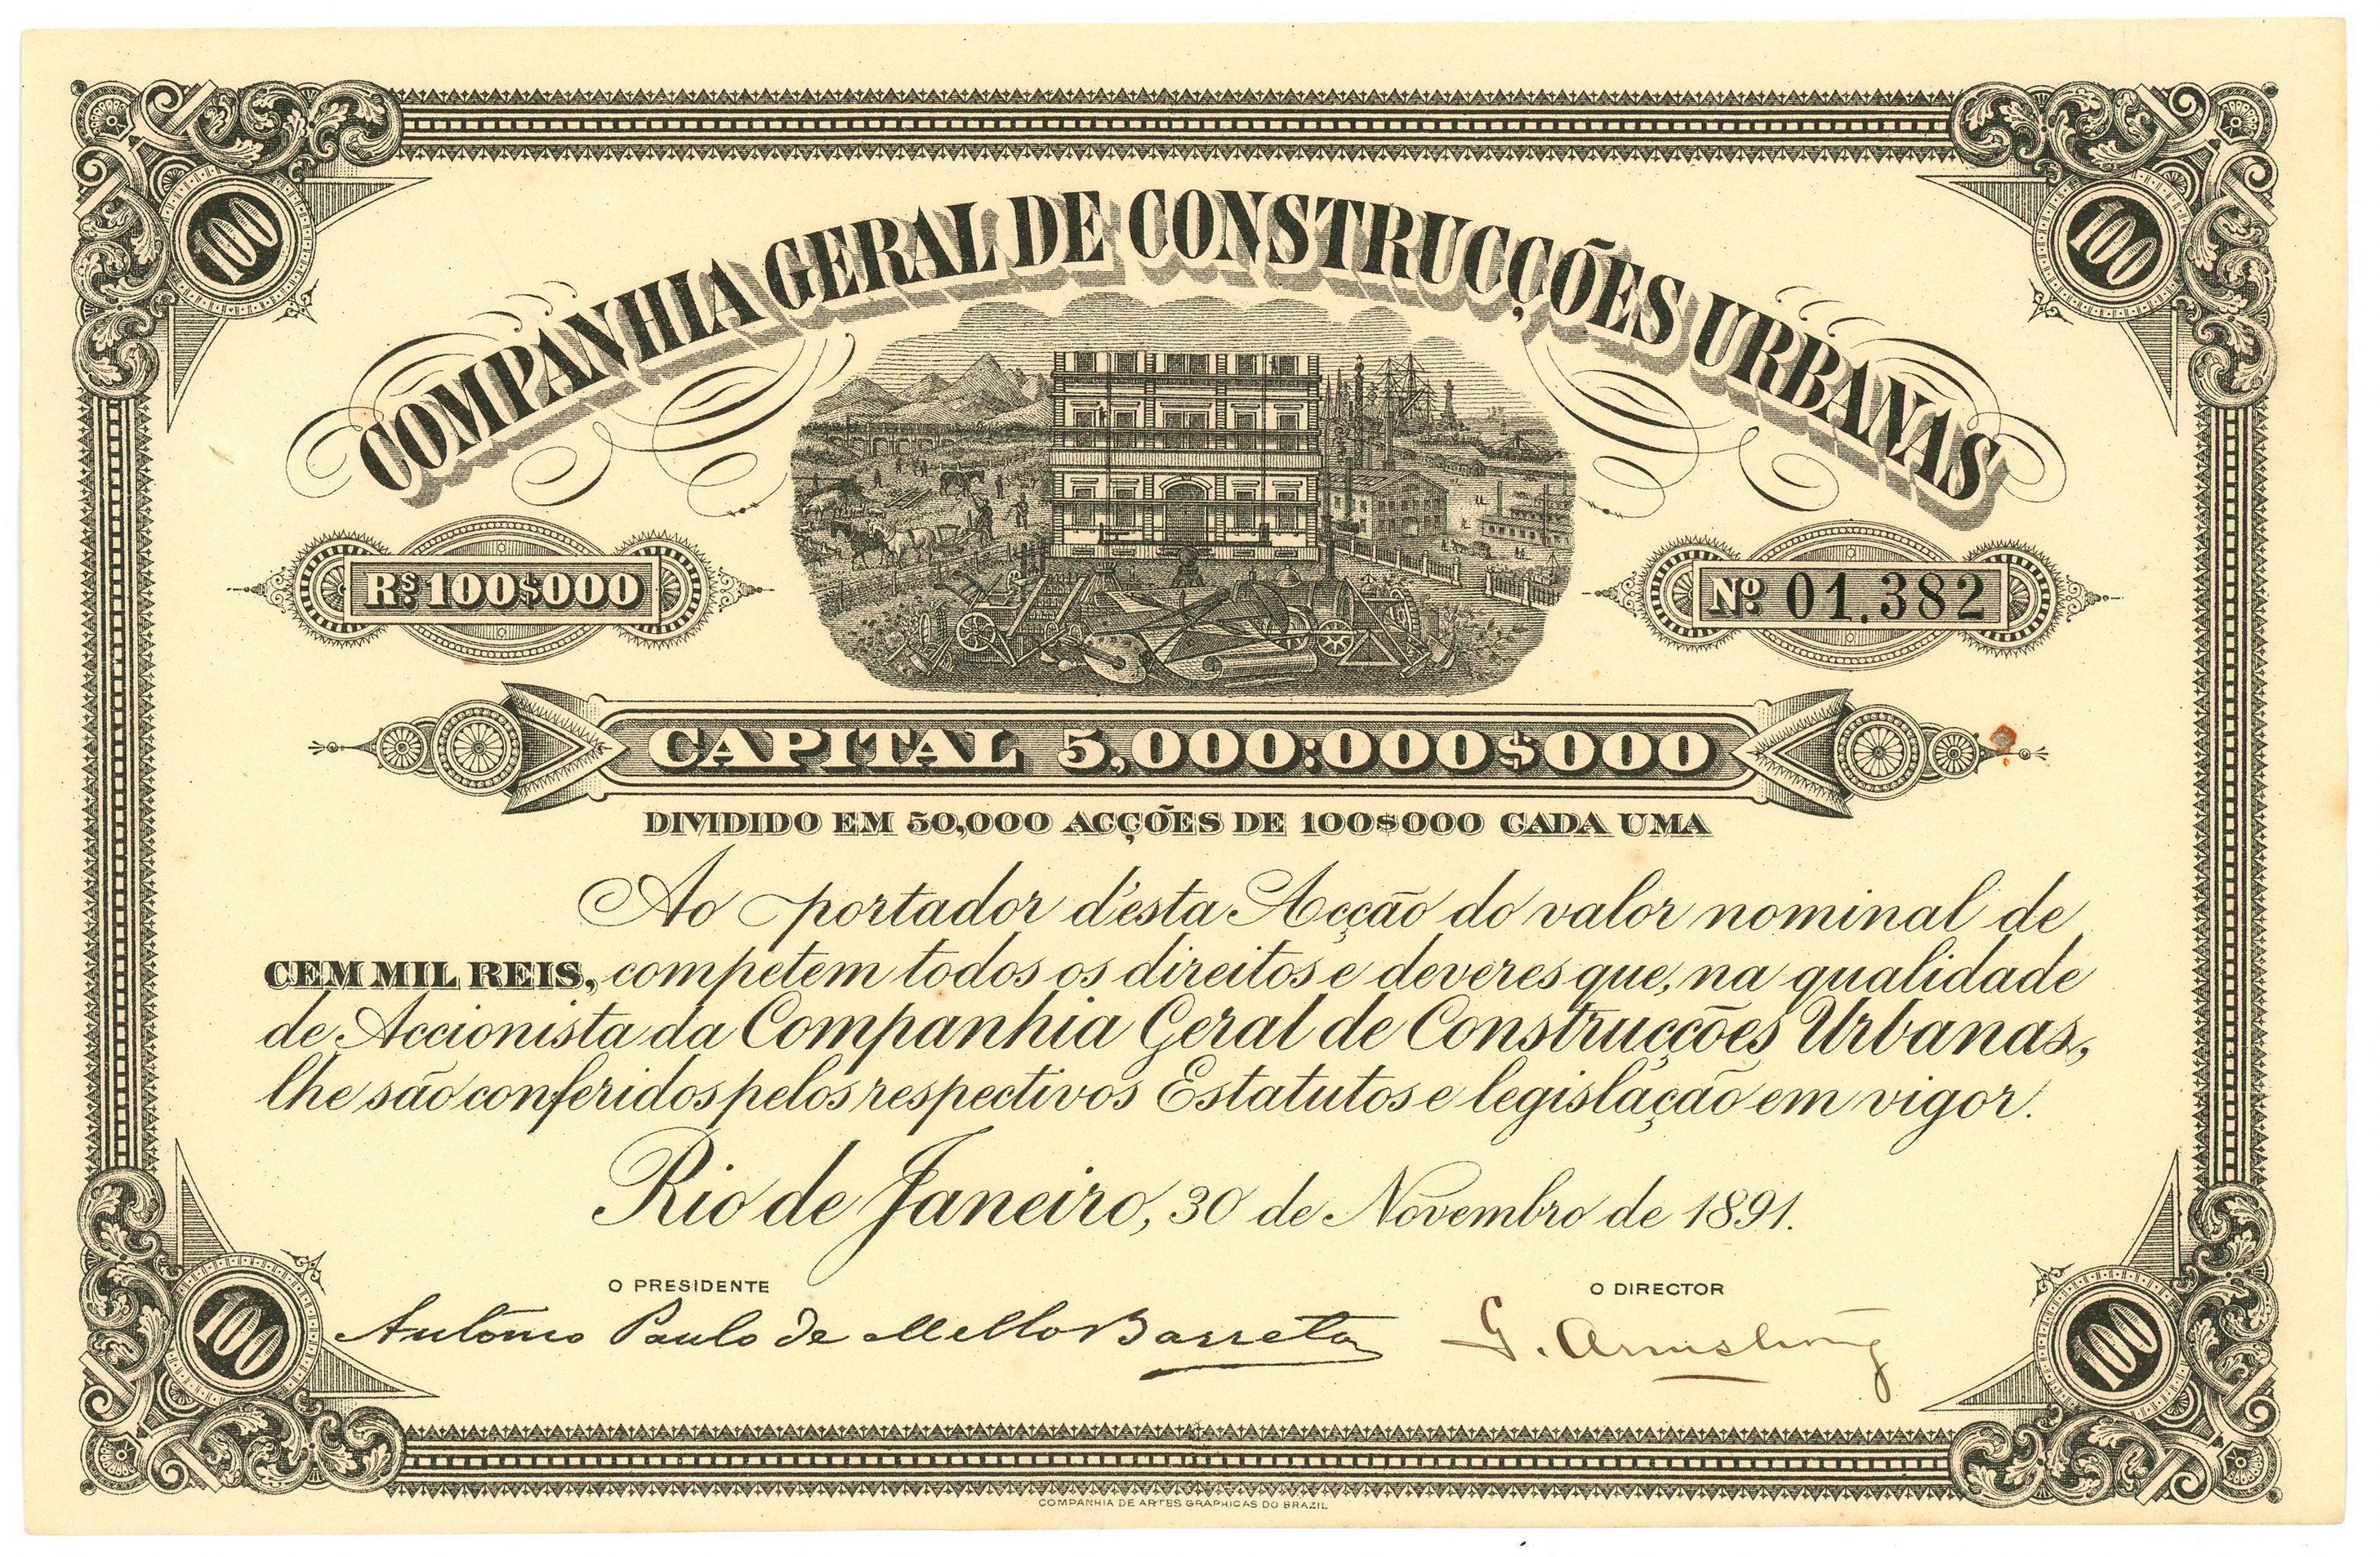 100
100
COMPANHIA GERAL DE CONSTRUCÇÕES URBANAS
Rs. 100$000
No. 01.382
CAPITAL 5,000:000$000
DIVIDIDO EM 50,000 ACÇÕES DE 100$000 CADA UMA
Ao portador d'esta Acção do valor nominal de
CEM MIL REIS, competem todos os direitos e deveres que, na qualidade
de Accionista da Companhia Geral de Construcções Urbanas,
lhe são conferidos pelos respectivos Estatutos e legislação em vigor.
Rio de Janeiro, 30 de Novembro de 1891.
O PRESIDENTE
O DIRECTOR
Antonio Paulo de Mello Barreto
G. Armstrong
100
100
COMPANHIA DE ARTES GRAPHICAS DO BRAZIL